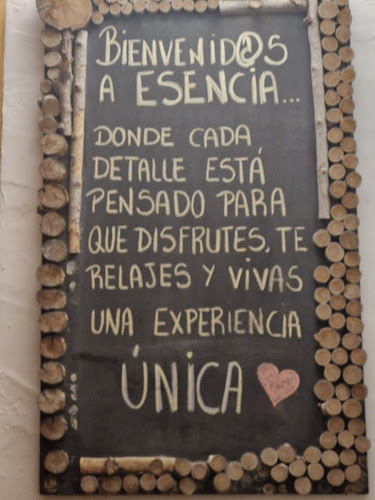 BIENVENID@S
A ESENCIA...
DONDE CADA
DETALLE ESTÁ
PENSADO PARA
QUE DISFRUTES, TE
RELAJES Y VIVAS
UNA EXPERIENCIA
ÚNICA